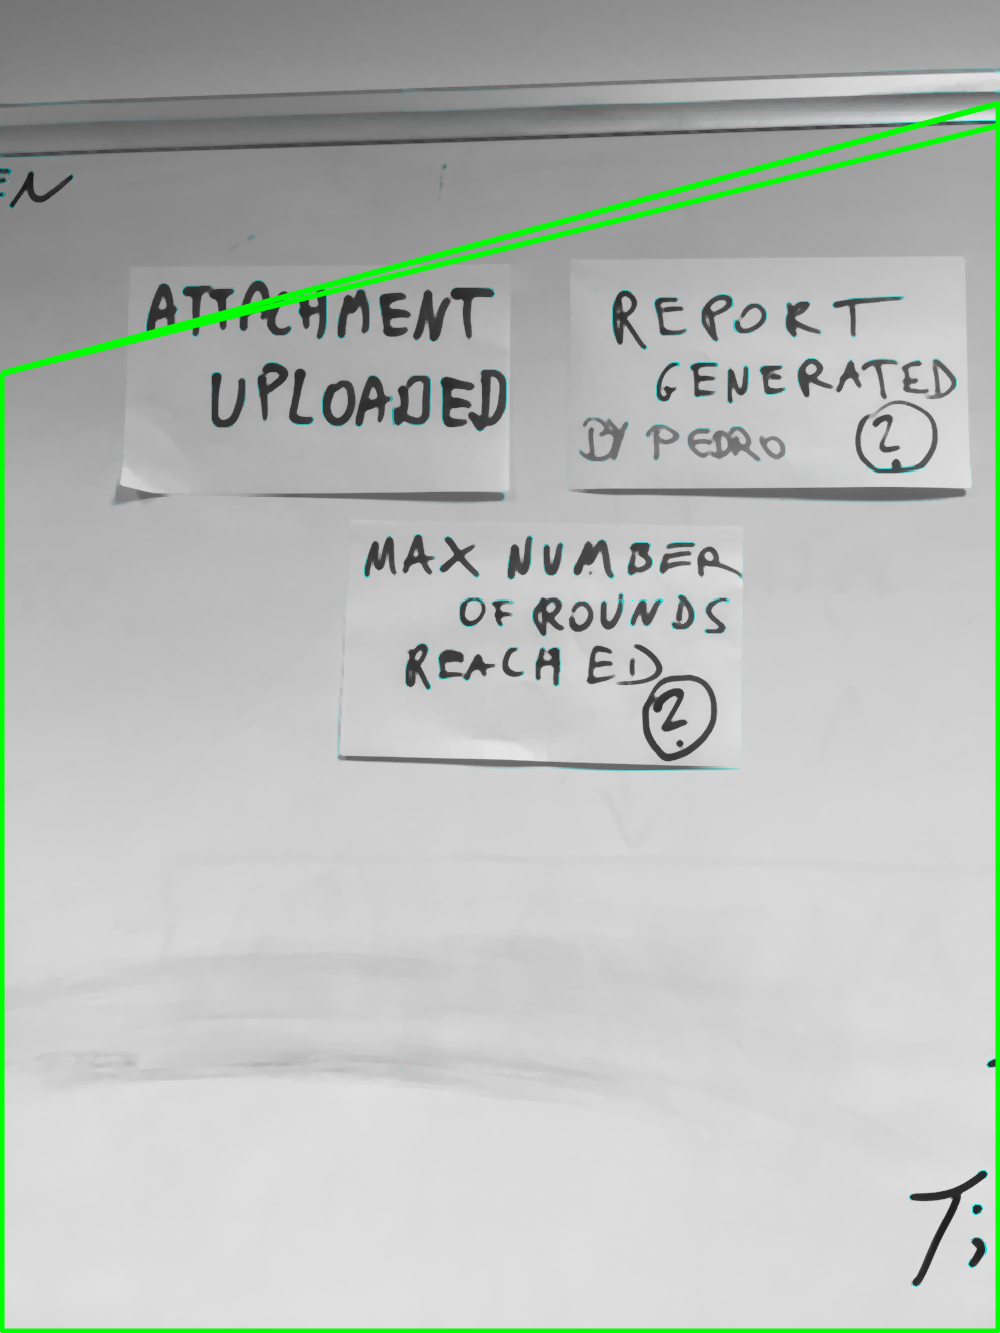 EN
ATTACHMENT
UPLOADED
REPORT
GENERATED
BY PEDRO ?
MAX NUMBER
OF ROUNDS
REACHED
?
T;